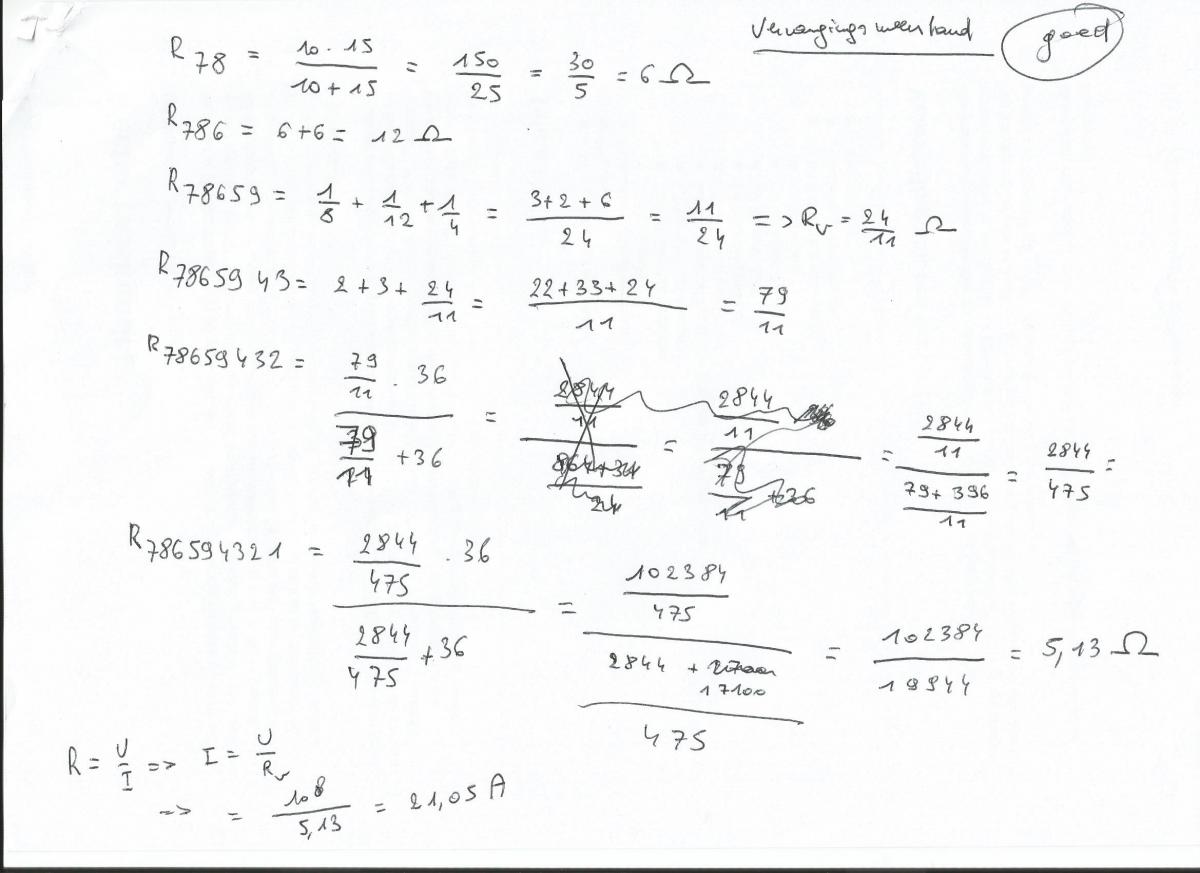 Vervangingsweerstand goed
R78 = 10 . 15 / 10 + 15 = 150 / 25 = 30 / 5 = 6 Ω
R786 = 6 + 6 = 12 Ω
R78659 = 1/8 + 1/12 + 1/4 = 3 + 2 + 6 / 24 = 11 / 24 => Rv = 24 / 11 Ω
R7865943 = 2 + 3 + 24/11 = 22 + 33 + 24 / 11 = 79 / 11
R78659432 = 79/11 . 36 / 79/11 + 36 = 2844/11 / = 2844/11 / 79/11 + 36 = 2844/11 / 79 + 396/11 = 2844 / 475 =
R786594321 = 2844/475 . 36 / 2844/475 + 36 = 102384/475 / 2844 + 17100/475 = 102384 / 19944 = 5,13 Ω
R = U/I => I = U/Rv
=> = 108 / 5,13 = 21,05 A